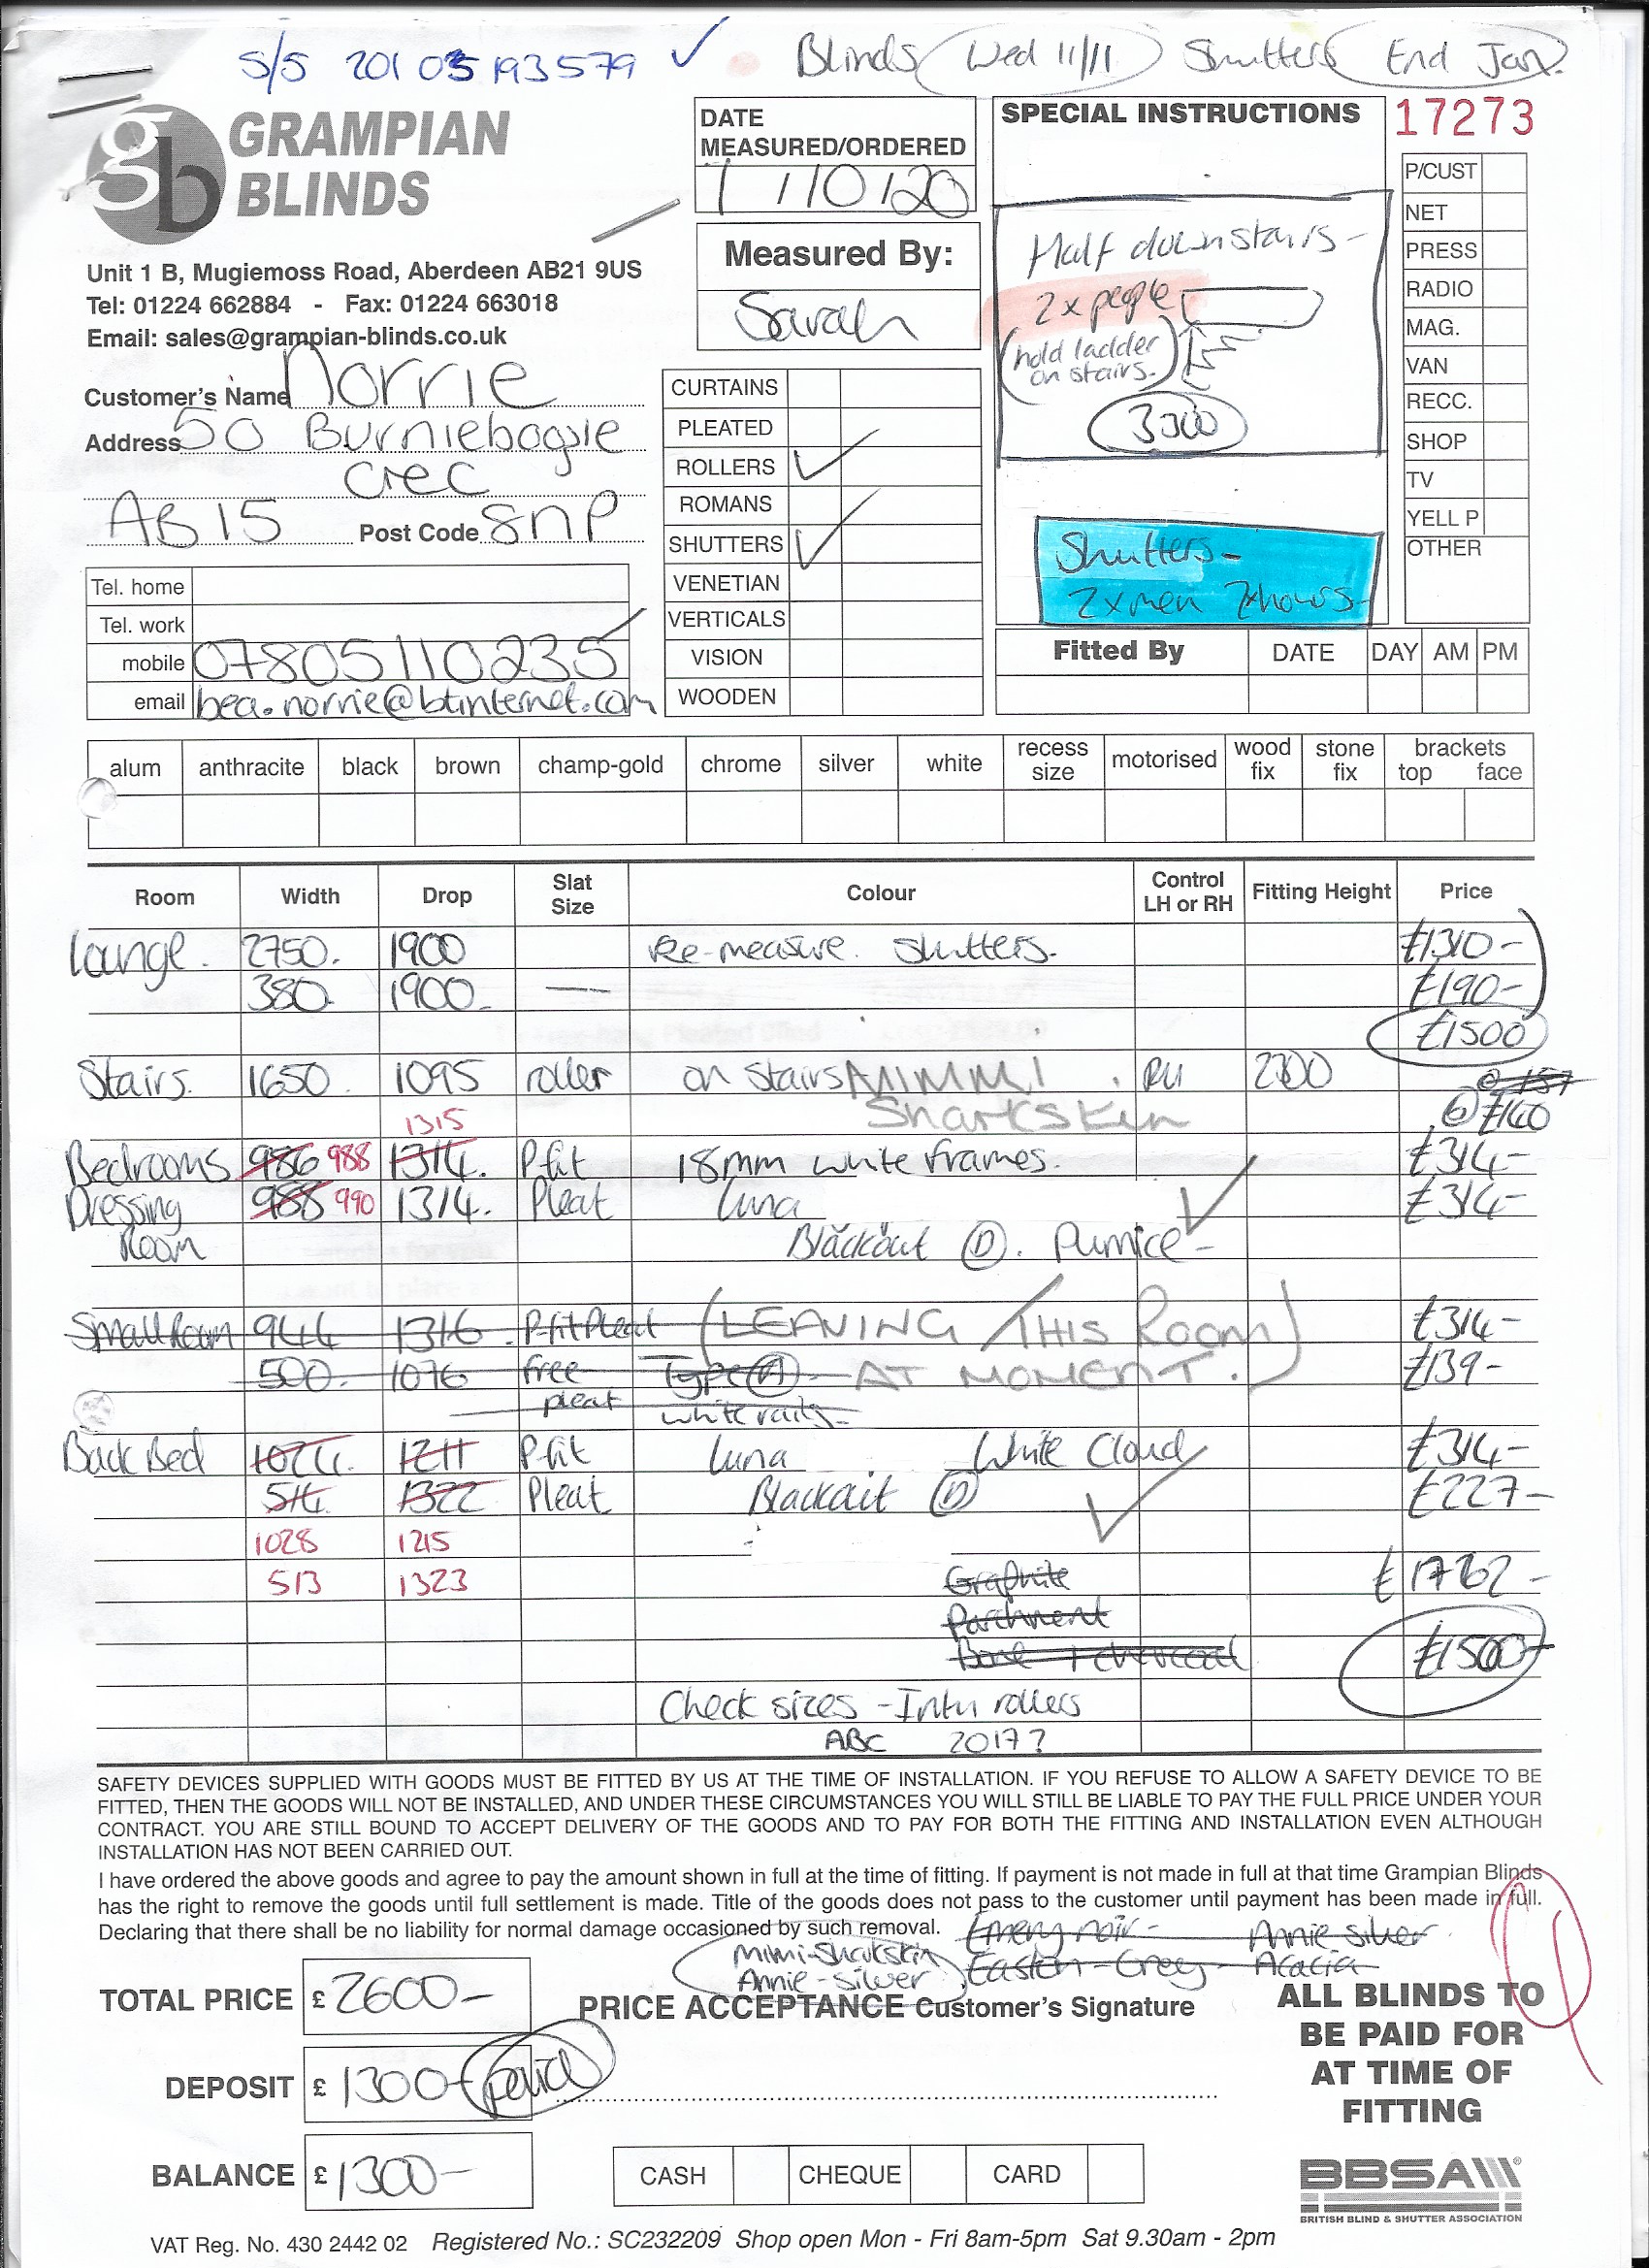 S/S 20103193579 ✓ Blinds Wed 11/11 Shutters End Jan.
GRAMPIAN
BLINDS
Unit 1 B, Mugiemoss Road, Aberdeen AB21 9US
Tel: 01224 662884 - Fax: 01224 663018
Email: sales@grampian-blinds.co.uk
Customer's Name Norrie
Address 50 Burniebogle
Crec
AB15 Post Code 8NP
Tel. home
Tel. work
mobile 07805110235
email bea.norrie@btinternet.com
DATE
MEASURED/ORDERED
1/10/20
Measured By:
Sarah
CURTAINS
PLEATED
ROLLERS ✓
ROMANS
SHUTTERS ✓
VENETIAN
VERTICALS
VISION
WOODEN
SPECIAL INSTRUCTIONS
Half downstairs -
2x people
(hold ladder
on stairs.)
3300
Shutters -
2xmen 7xhours-
17273
P/CUST
NET
PRESS
RADIO
MAG.
VAN
RECC.
SHOP
TV
YELL P
OTHER
Fitted By DATE DAY AM PM
alum anthracite black brown champ-gold chrome silver white recess size motorised wood fix stone fix brackets top face
Room Width Drop Slat Size Colour Control LH or RH Fitting Height Price
Lounge. 2750. 1900 Re-measure. Shutters. £1310-
380. 1900- £190-
£1500
Stairs. 1650. 1095 roller on stairs MIMMI RH 2300 @ 157
1315 Sharkskin @ £160
Bedrooms 986 988 1314. P-fit 18mm white frames. £314-
Dressing 988 990 1314. Pleat Luna £314-
Room Blackout (D). Pumice -
Small Room 944 1316. P-fit Pleat (LEAVING THIS ROOM £314-
500. 1076 free Type (A) - AT MOMENT.) £139-
pleat white rails-
Back Bed 1024. 1211 P-fit Luna White Cloud £314-
514 1322 Pleat Blackout (D) £227-
1028 1215
513 1323 Graphite £1762-
Parchment
charcoal £1500-
Check sizes - Intu rollers
ABC 2017?
SAFETY DEVICES SUPPLIED WITH GOODS MUST BE FITTED BY US AT THE TIME OF INSTALLATION. IF YOU REFUSE TO ALLOW A SAFETY DEVICE TO BE
FITTED, THEN THE GOODS WILL NOT BE INSTALLED, AND UNDER THESE CIRCUMSTANCES YOU WILL STILL BE LIABLE TO PAY THE FULL PRICE UNDER YOUR
CONTRACT. YOU ARE STILL BOUND TO ACCEPT DELIVERY OF THE GOODS AND TO PAY FOR BOTH THE FITTING AND INSTALLATION EVEN ALTHOUGH
INSTALLATION HAS NOT BEEN CARRIED OUT.
I have ordered the above goods and agree to pay the amount shown in full at the time of fitting. If payment is not made in full at that time Grampian Blinds
has the right to remove the goods until full settlement is made. Title of the goods does not pass to the customer until payment has been made in full.
Declaring that there shall be no liability for normal damage occasioned by such removal.
Emery noir - Annie silver
Mimi-Sharkskin Easton - Grey - Acacia
Annie - silver
TOTAL PRICE £ 2600-
PRICE ACCEPTANCE Customer's Signature
DEPOSIT £ 1300- paid
BALANCE £ 1300-
CASH CHEQUE CARD
ALL BLINDS TO
BE PAID FOR
AT TIME OF
FITTING
BBSA
BRITISH BLIND & SHUTTER ASSOCIATION
VAT Reg. No. 430 2442 02 Registered No.: SC232209 Shop open Mon - Fri 8am-5pm Sat 9.30am - 2pm